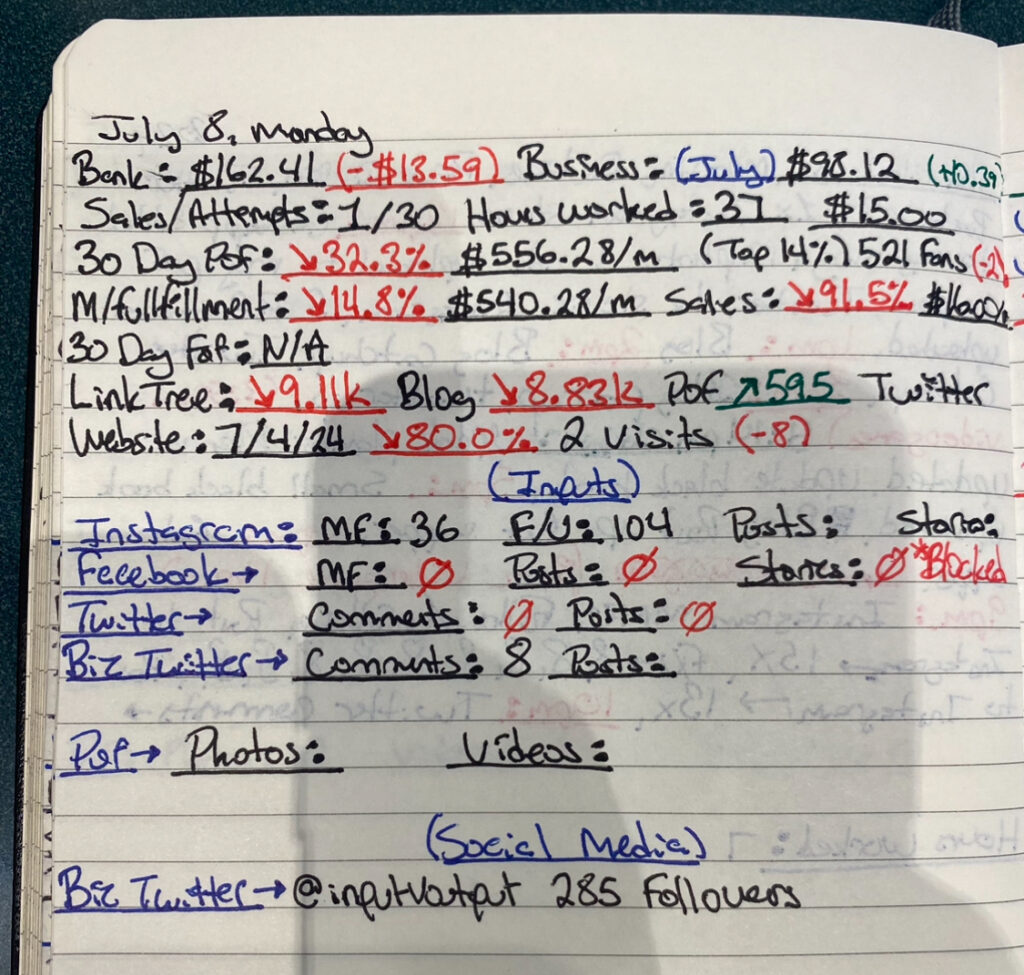 July 8, Monday
Bank: $162.41 (-$13.59) Business: (July) $98.12 (+10.39
Sales/Attempts: 1/30 Hours worked: 37 $15.00
30 Day Pof: ↘32.3% $556.28/m (Top 14%) 521 Fans (-2)
M/fullfillment: ↘14.8% $540.28/m Sales: ↘91.5%
30 Day Fof: N/A
LinkTree: ↘9.11k Blog ↘8.83k Pof ↗595 Twitter
Website: 7/4/24 ↘80.0% 2 Visits (-8)
(Inputs)
Instagram: MF: 36 F/U: 104 Posts:
Feeebook→ MF: Ø Posts: Ø Stories: Ø *Blocked
Twitter→ Comments: Ø Posts: Ø
Biz Twitter→ Comments: 8 Posts:
Pof→ Photos: Videos:
(Social Media)
Biz Twitter→ @inputvoutput 285 Followers